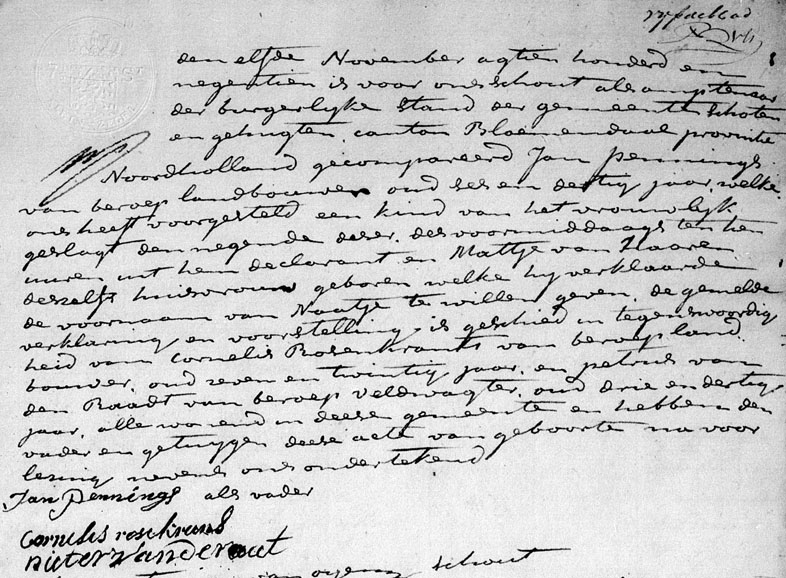 den elfde November agtien honderd en
negentien is voor ons schout als amptenaar
der burgerlyke stand der gemeente schoten
en gehugten canton Bloemendaal provintie
Noordholland gecompareerd Jan Pennings
van beroep landbouwer oud ses en dertig jaar, welke
ons heeft voorgesteld een kind van het vrouwlyk
geslagt den negende deser, des voormiddaags ten tien
uuren uit hem declarant en Maltje van Haaren
deszelfs huisvrouw geboren welke hy verklaarde
de voornaam van Naatje te willen geven, de gemelde
verklaring en voorstelling is geschied in tegenswoordig
heid van Cornelis Rosenkrants van beroep land
bouwer, oud seven en twintig jaar, en petrus van
den Raadt van beroep veldwagter, oud drie en dertig
jaar, alle wonend in deese gemeente en hebben den
vader en getuygen deese acte van geboorte na voor
lezing nevens ons ondertekend
Jan Pennings als vader
Cornelis rosekrans
pieter van der
schout